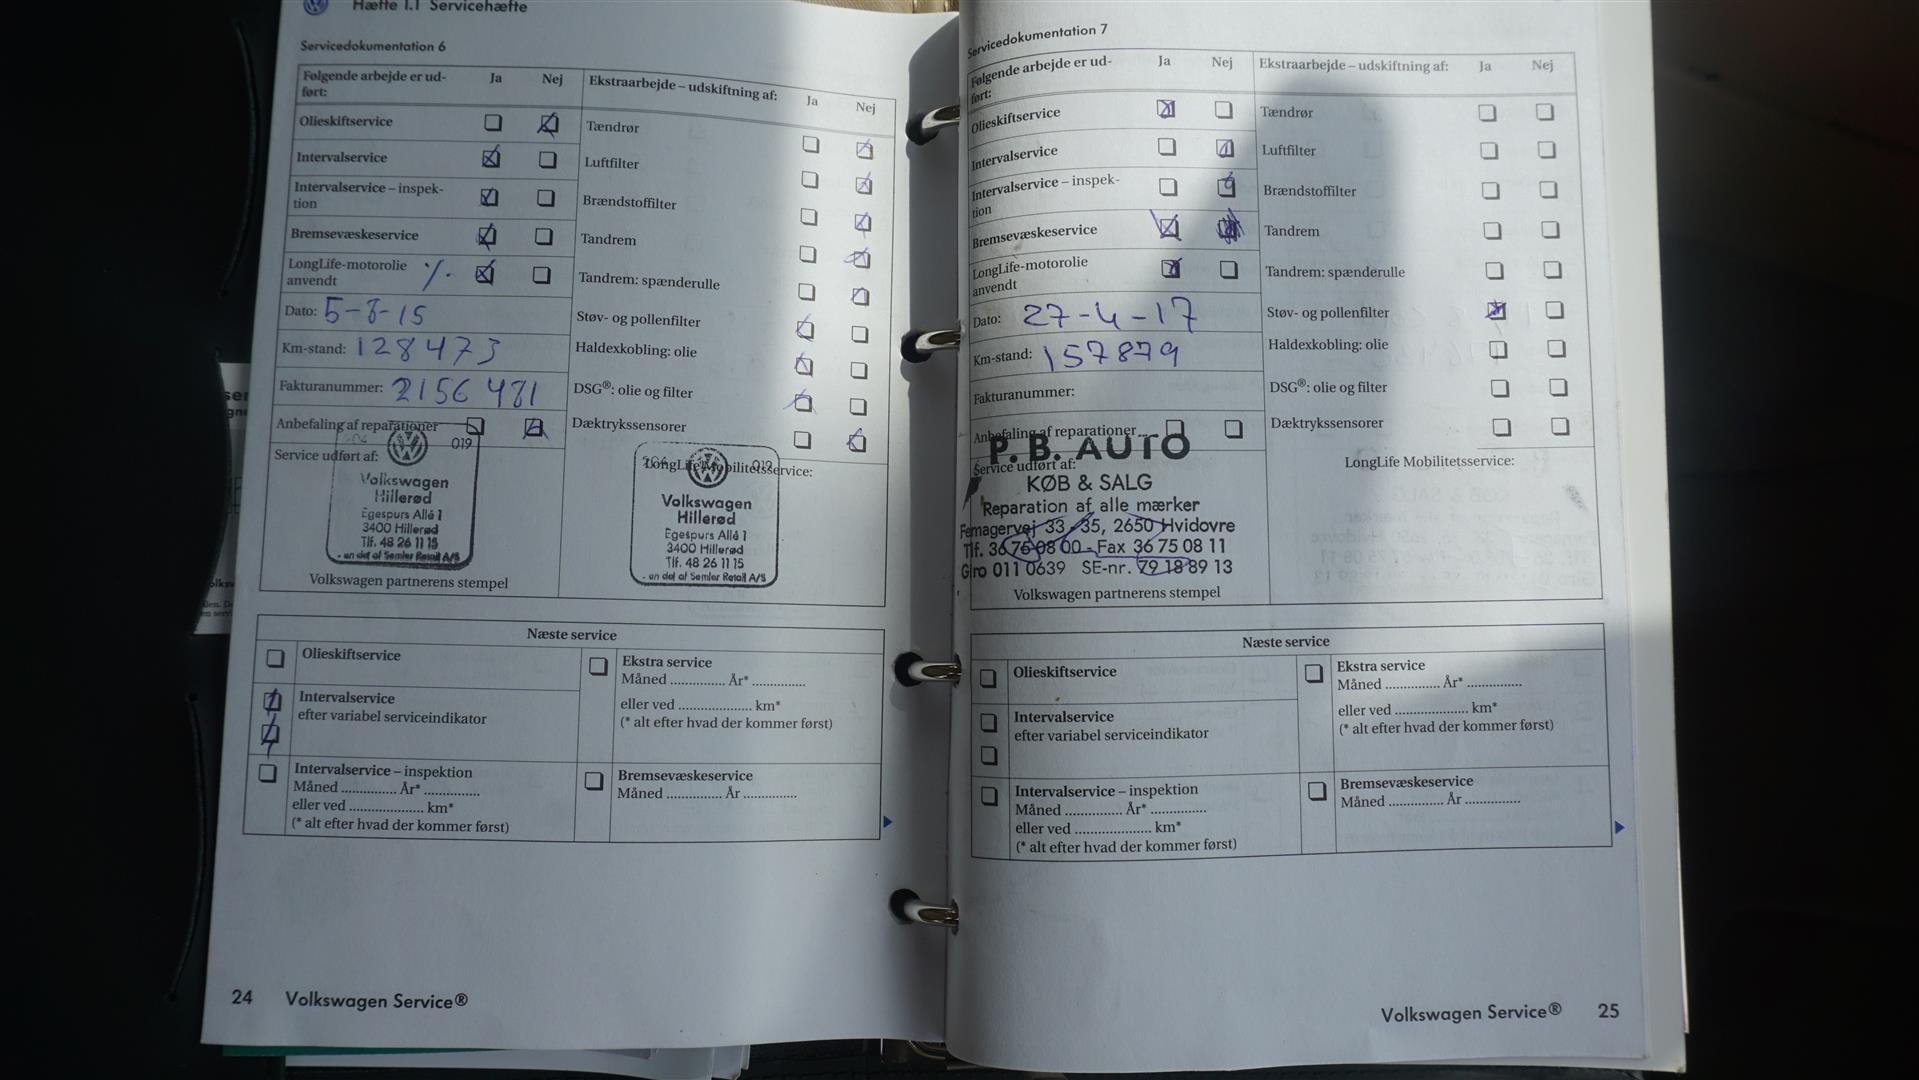 Hæfte 1.1 Servicehæfte
Servicedokumentation 6
Følgende arbejde er ud-
ført:
Ja Nej
Ekstraarbejde – udskiftning af:
Ja Nej
Olieskiftservice
Tændrør
Intervalservice
Luftfilter
Intervalservice – inspek-
tion
Brændstoffilter
Bremsevæskeservice
Tandrem
LongLife-motorolie
anvendt
Tandrem: spænderulle
Dato: 5-8-15
Støv- og pollenfilter
Km-stand: 128473
Haldexkobling: olie
Fakturanummer: 2156481
DSG®: olie og filter
Anbefaling af reparationer
Dæktrykssensorer
Service udført af:
LongLife Mobilitetsservice:
019
Volkswagen
Hillerød
Egespurs Allé 1
3400 Hillerød
Tlf. 48 26 11 15
- en del af Semler Retail A/S
Volkswagen partnerens stempel
019
Volkswagen
Hillerød
Egespurs Allé 1
3400 Hillerød
Tlf. 48 26 11 15
- en del af Semler Retail A/S
Næste service
Olieskiftservice
Ekstra service
Måned ............... År* ..............
eller ved .................... km*
(* alt efter hvad der kommer først)
Intervalservice
efter variabel serviceindikator
Intervalservice – inspektion
Måned ............... År* ...............
eller ved .................... km*
(* alt efter hvad der kommer først)
Bremsevæskeservice
Måned ............... År ...............
24 Volkswagen Service®
Servicedokumentation 7
Følgende arbejde er ud-
ført:
Ja Nej
Ekstraarbejde – udskiftning af:
Ja Nej
Olieskiftservice
Tændrør
Intervalservice
Luftfilter
Intervalservice – inspek-
tion
Brændstoffilter
Bremsevæskeservice
Tandrem
LongLife-motorolie
anvendt
Tandrem: spænderulle
Dato: 27-4-17
Støv- og pollenfilter
Km-stand: 157879
Haldexkobling: olie
Fakturanummer:
DSG®: olie og filter
Anbefaling af reparationer...
Dæktrykssensorer
Service udført af:
LongLife Mobilitetsservice:
P. B. AUTO
KØB & SALG
Reparation af alle mærker
Femagervej 33 - 35, 2650 Hvidovre
Tlf. 36 75 08 00 - Fax 36 75 08 11
Giro 011 0639 SE-nr. 79 18 89 13
Volkswagen partnerens stempel
Næste service
Olieskiftservice
Ekstra service
Måned ............... År* ...............
eller ved .................... km*
(* alt efter hvad der kommer først)
Intervalservice
efter variabel serviceindikator
Intervalservice – inspektion
Måned ............... År* ...............
eller ved .................... km*
(* alt efter hvad der kommer først)
Bremsevæskeservice
Måned ............... År ...............
Volkswagen Service® 25